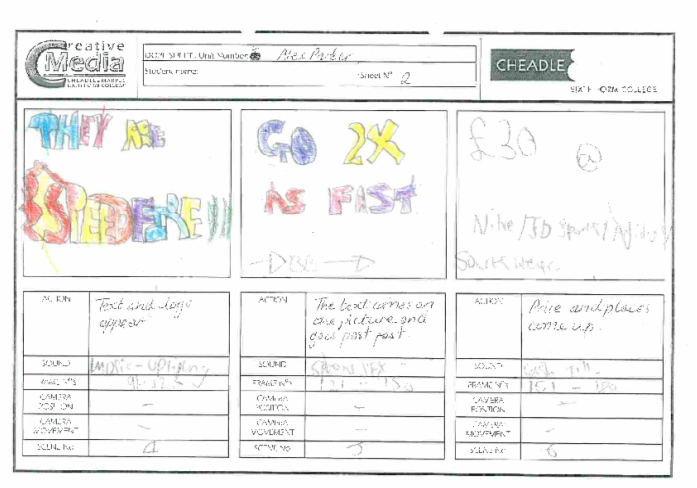 Creative
Media
Unit Number
Alex Parker
Student name:
Sheet Nº 2
CHEADLE
SIXTH FORM COLLEGE
THEY ARE
SPEEDFIRE!!
GO 2X
AS FIST
£30
Nike / JD Sports /
ACTION
Text and logo
appear
SOUND
Music -
FRAME Nºs
CAMERA
POSITION
-
CAMERA
MOVEMENT
-
SCENE No
4
ACTION
The text comes on
the picture and
goes past fast.
SOUND
FRAME Nºs
121 - 150
CAMERA
POSITION
-
CAMERA
MOVEMENT
-
SCENE No
5
ACTION
Price and places
come up.
SOUND
FRAME Nºs
151 - 180
CAMERA
POSITION
-
CAMERA
MOVEMENT
-
SCENE No
6